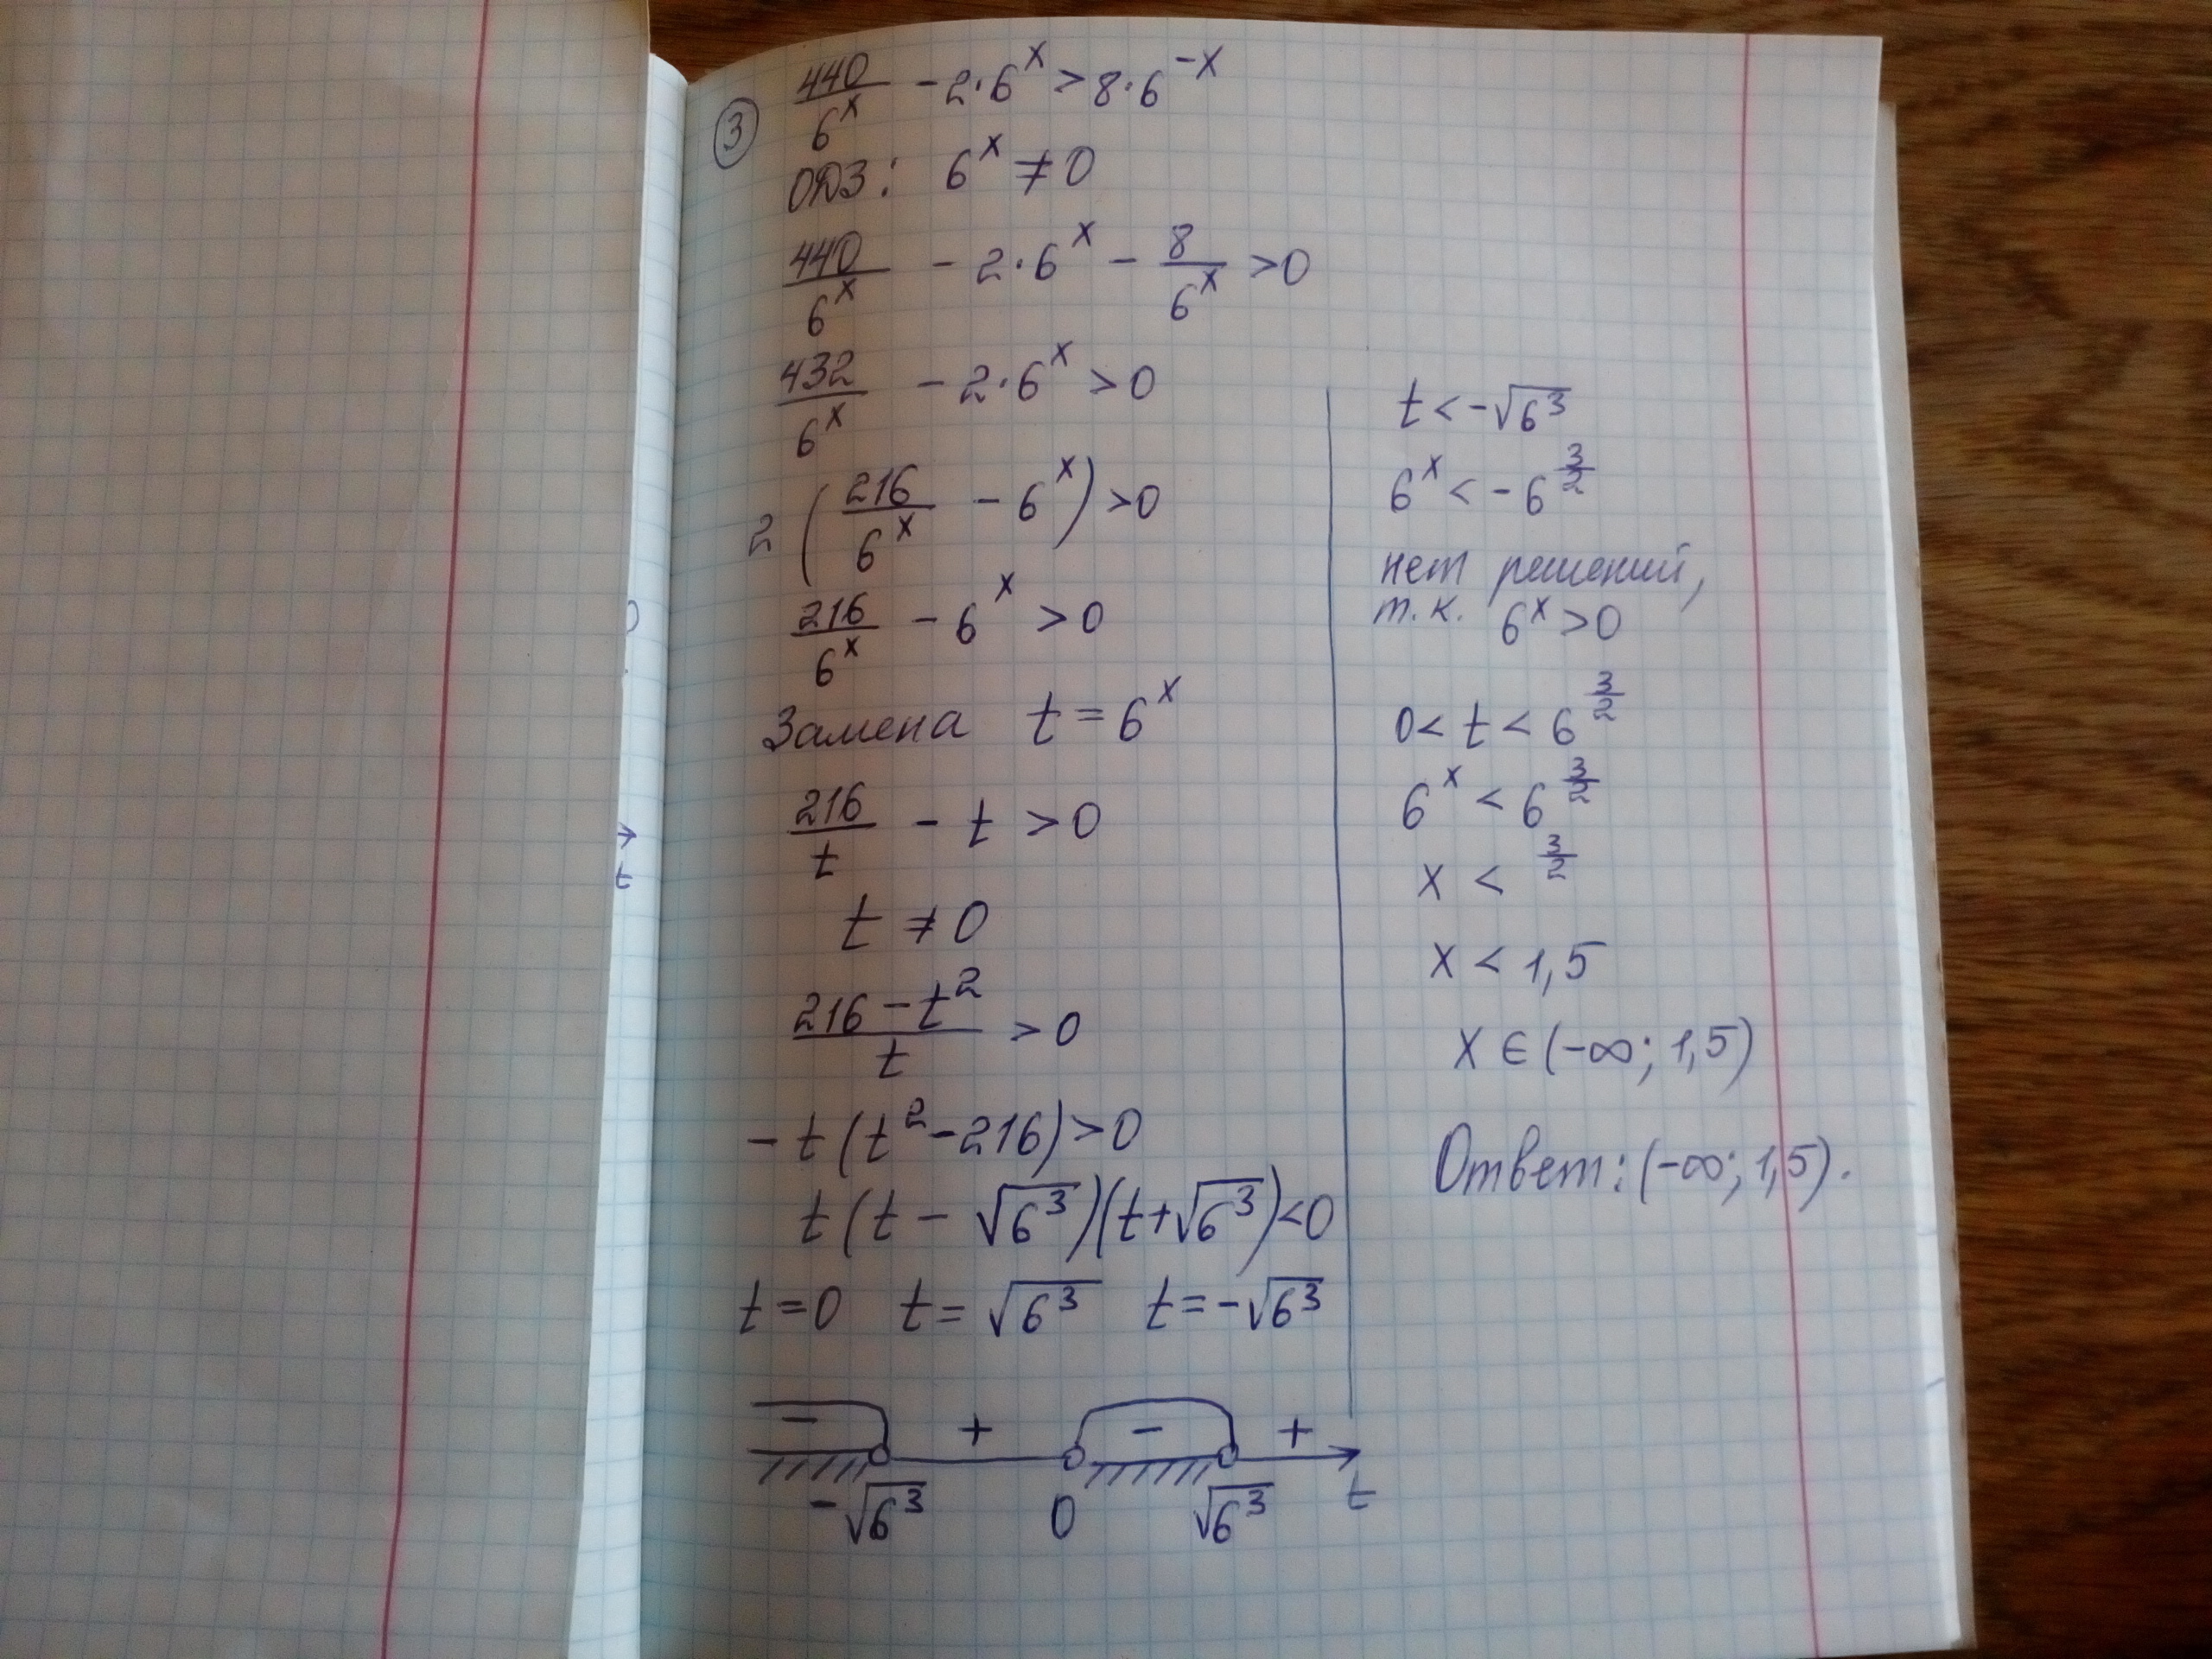 ③ 440/6^x - 2·6^x > 8·6^-x
ОДЗ: 6^x ≠ 0
440/6^x - 2·6^x - 8/6^x > 0
432/6^x - 2·6^x > 0
2(216/6^x - 6^x) > 0
216/6^x - 6^x > 0
Замена t = 6^x
216/t - t > 0
t ≠ 0
(216 - t²)/t > 0
-t(t² - 216) > 0
t(t - √6³)(t + √6³) < 0
t = 0 t = √6³ t = -√6³
- + - +
-√6³ 0 √6³ t
t < -√6³
6^x < -6^(3/2)
нет решений,
т.к. 6^x > 0
0 < t < 6^(3/2)
6^x < 6^(3/2)
x < 3/2
x < 1,5
x ∈ (-∞; 1,5)
Ответ: (-∞; 1,5).
t